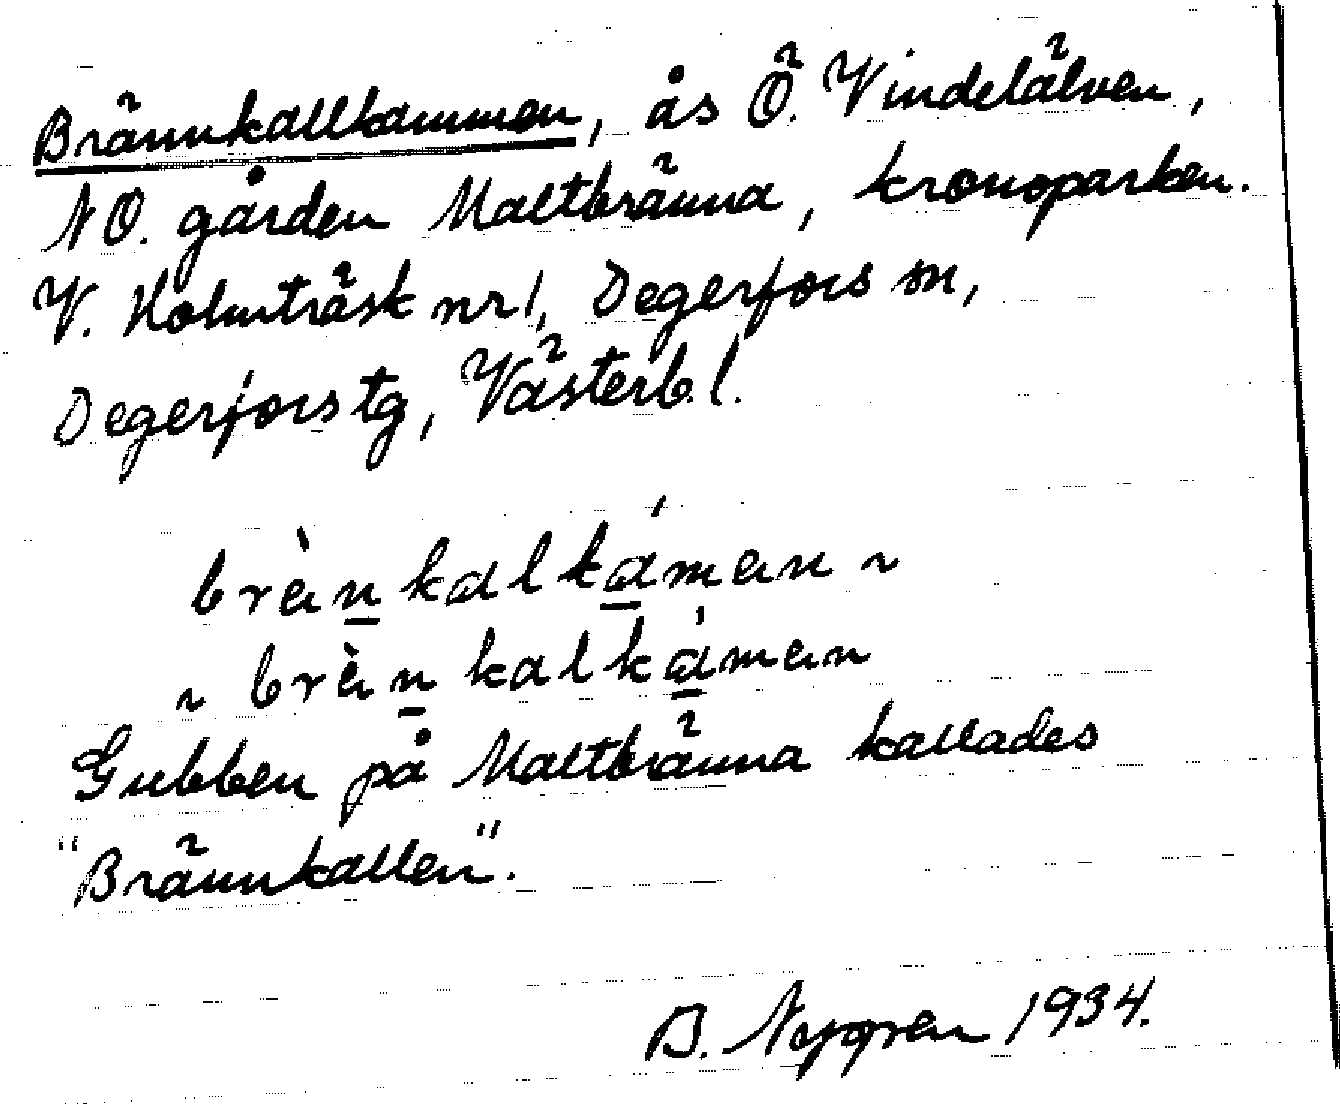 Brännkallkammen, ås Ö. Vindelälven,
NO. gården Maltbränna, kronoparken.
V. Holmträsk nr 1, Degerfors sn,
Degerfors tg, Västerb. l.
brènkalkámən ~
~ brènkalkámən
Gubben på Maltbränna kallades
"Brännkallen".
B. Nygren 1934.